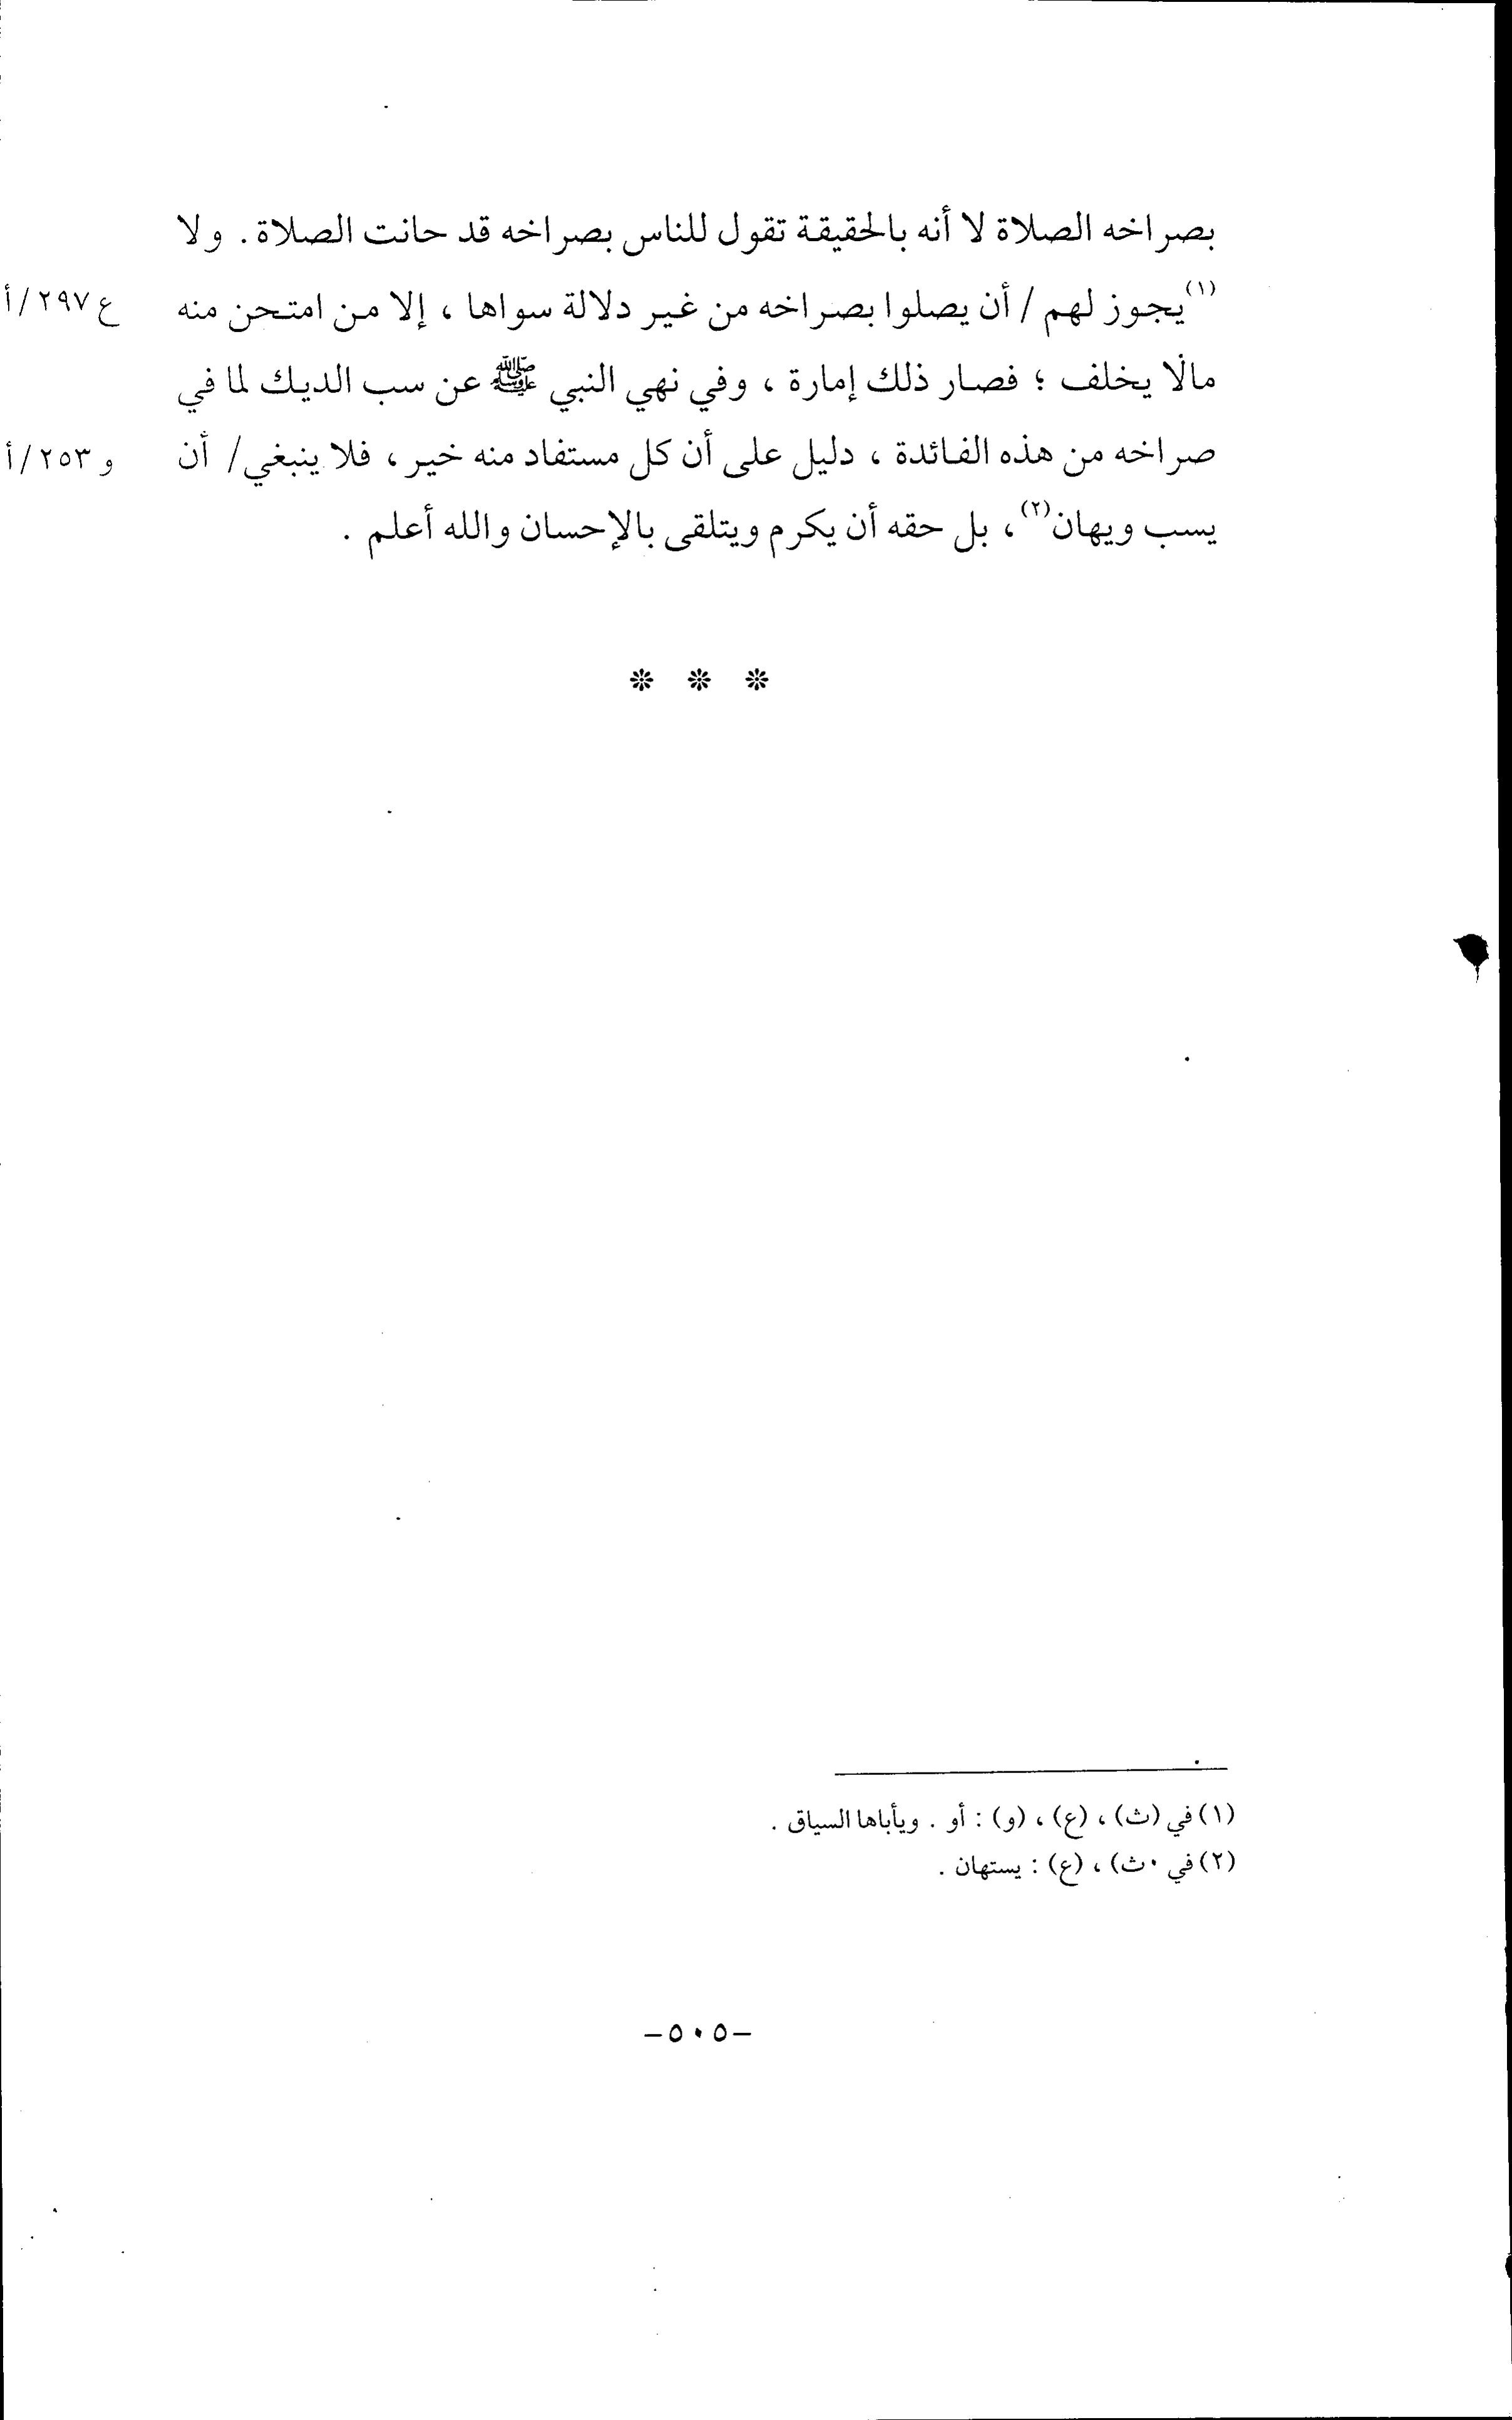 بصراخه الصلاة لا أنه بالحقيقة تقول للناس بصراخه قد حانت الصلاة . ولا
(١)يجوز لهم / أن يصلوا بصراخه من غير دلالة سواها ، إلا من امتحن منه ع ٢٩٧/أ
مالا يخلف ؛ فصار ذلك إمارة ، وفي نهي النبي ﷺ عن سب الديك لما في
صراخه من هذه الفائدة ، دليل على أن كل مستفاد منه خير ، فلا ينبغي/ أن و ٢٥٣/أ
يسب ويهان(٢)، بل حقه أن يكرم ويتلقى بالإحسان والله أعلم .
* * *
(١) في (ث) ، (ع) ، (و) : أو . ويأباها السياق .
(٢) في ٠ث) ، (ع) : يستهان .
-٥٠٥-